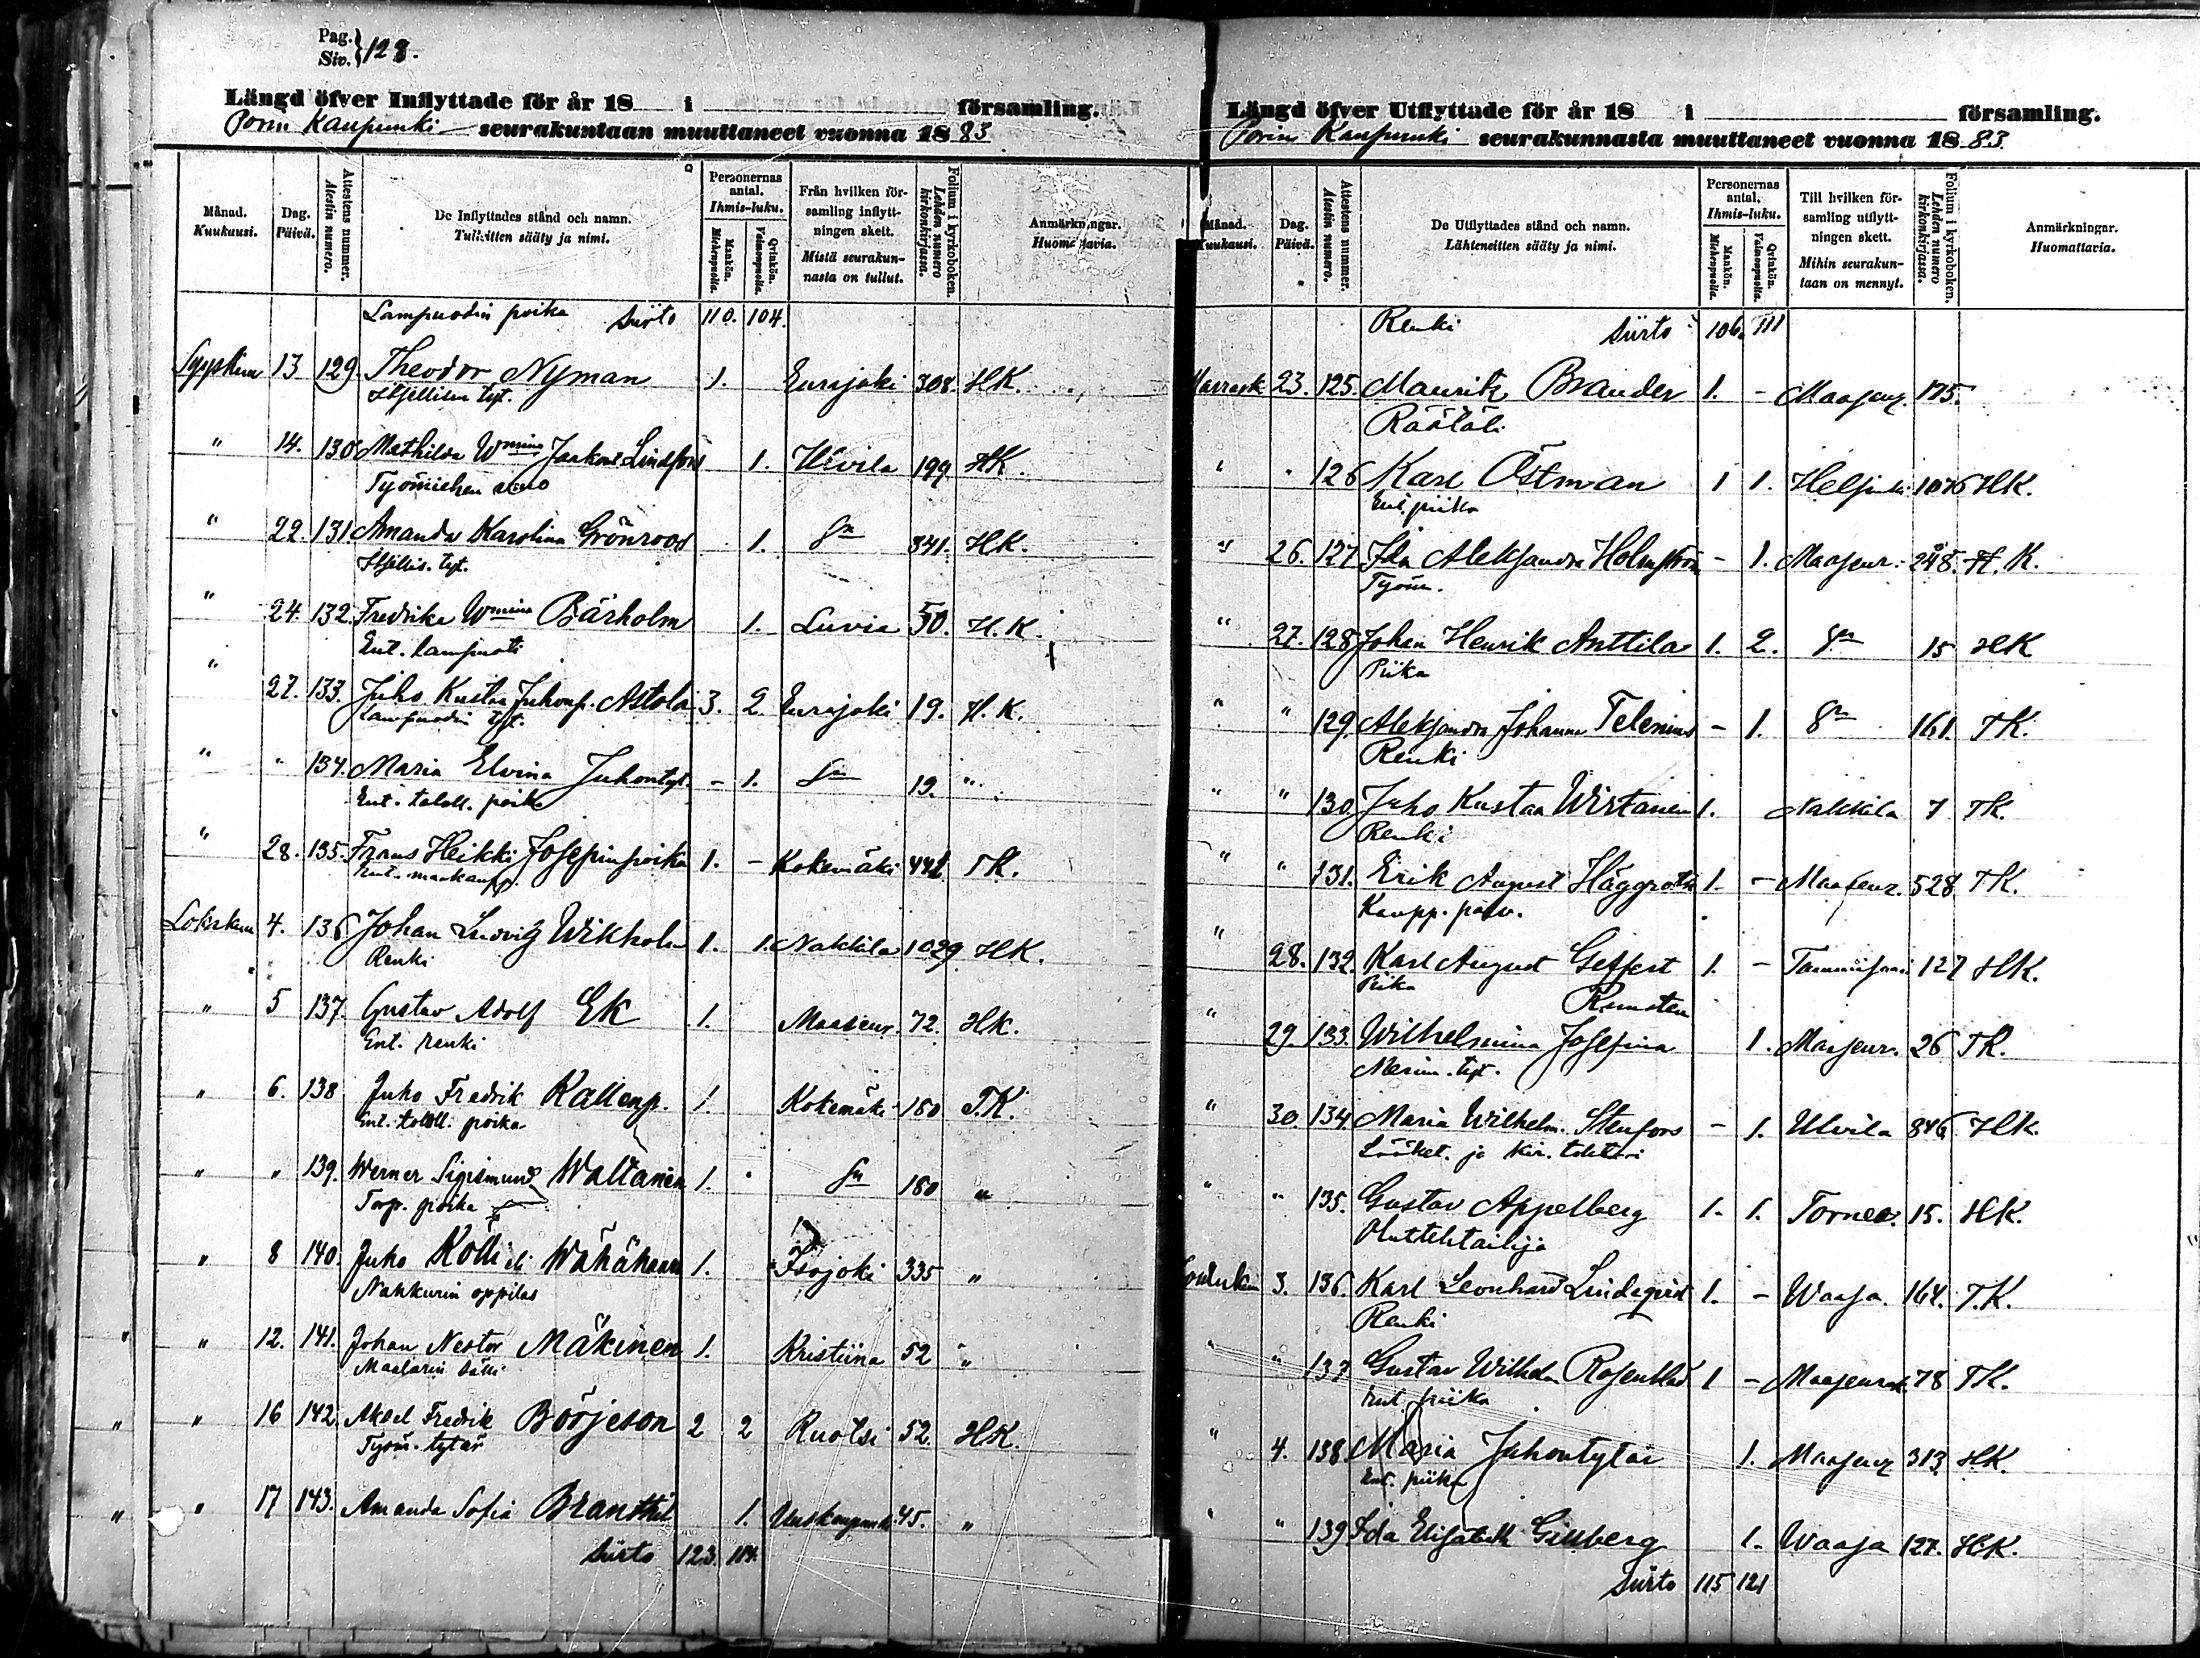 Pag.
Siv. } 128.
Längd öfver Inflyttade för år 18 i församling.
Porin Kaupunki seurakuntaan muuttaneet vuonna 1883
Månad. Kuukausi.
Dag. Päivä.
Attestens nummer. Atestin numero.
De Inflyttades stånd och namn. Tulleitten sääty ja nimi.
Personernas antal. Ihmis-luku.
Mankön. Miehenpuolia.
Qvinkön. Vaimonpuolia.
Från hvilken församling inflyttningen skett. Mistä seurakunnasta on tullut.
Folium i kyrkoboken. Lehden numero kirkonkirjassa.
Anmärkningar. Huomattavia.
Lampuodin poika siirto 110. 104.
Syyskuu 13 129. Theodor Nyman 1. Eurajoki 308. HK.
Itsellisen tyt.
" 14. 130 Mathilda Wmina Jaakont. Lindfors 1. Ulvila 199 HK.
Työmiehen vaimo
" 22. 131. Amanda Karolina Grönroos 1. Sn 341. HK.
Itsellis. tyt.
" 24. 132. Fredrika Wmina Bärholm 1. Luvia 50. H.K.
Ent. lampuoti
" 27. 133. Juho Kustaa Juhonp. Astola 3. 2 Eurajoki 19. H.K.
Lampuodin tyt.
" " 134. Maria Elvina Juhontyt. - 1. Sn 19. "
Ent. taloll. poika
" 28. 135. Frans Heikki Josepinpoika 1. - Kokemäki 441. TK.
Ent. maakaupp.
Lokakuu 4. 136 Johan Ludvig Wikholm 1. 1. Nakkila 1029 HK.
Renki
" 5 137. Gustav Adolf Ek 1. Maaseur. 72. HK.
Ent. renki
" 6. 138 Juho Fredrik Kallenp. 1. Kokemäki 180 T.K.
Ent. taloll. poika
" " 139. Werner Sigismund Waltanen 1. Sn 180 "
Torp. poika
" 8 140. Juho Kolli eli Wähä 1. Isojoki 335 "
Nahkurin oppilas
" 12. 141. Johan Nestor Mäkinen 1. Kristiina 52 "
Maalarin sälli
" 16 142 Aksel Fredrik Börjeson 2 2 Ruotsi 52. HK.
Työm. tytär
" 17 143. Amanda Sofia 1. Uuskaupunki 45. "
siirto 123. 114.
Längd öfver Utflyttade för år 18 i församling.
Porin Kaupunki seurakunnasta muuttaneet vuonna 1883
Månad. Kuukausi.
Dag. Päivä.
Attestens nummer. Atestin numero.
De Utflyttades stånd och namn. Lähteneitten sääty ja nimi.
Personernas antal. Ihmis-luku.
Mankön. Miehenpuolia.
Qvinkön. Vaimonpuolia.
Till hvilken församling utflyttningen skett. Mihin seurakuntaan on mennyt.
Folium i kyrkoboken. Lehden numero kirkonkirjassa.
Anmärkningar. Huomattavia.
Renki siirto 106. 111
Marrask 23. 125. Mauritz Brander 1. - Maaseur. 175.
Räätäli
" " 126 Karl Östman 1 1. Helsinki 1076 HK.
Ent. piika
" 26. 127 Ida Aleksandra Holmström - 1. Maaseur. 248. H.K.
Työm.
" 27. 128 Johan Henrik Anttila 1. 2. Sn 15 HK
Piika
" " 129. Aleksandra Johanna Telenius - 1. Sn 161. TK.
Renki
" " 130. Juho Kustaa Wirtanen 1. Nakkila 7 TK.
Renki
" " 131. Erik August Häggroth 1. - Maaseur. 528 TK.
Kaupp. palv.
" 28. 132. Karl August Geffert 1. - 127 HK.
Piika Remsten
" 29. 133. Wilhelmina Josefina 1. Maaseur. 26 TK.
Merim. tyt.
" 30 134 Maria Wilhelm. Stenfors - 1. Ulvila 846 HK.
Lääket. ja kir. tohtori
" " 135. Gustav Appelberg 1. 1. Tornea. 15. HK.
Olu
Jouluku 3. 136. Karl Leonhard Lindeqvist 1. - Waasa. 164. T.K.
Renki
" " 137 Gustav Wilhelm Rosenblad 1 - Maaseurak 78 TK.
Ent. piika
" 4. 138 Maria Juhontytär 1. Maaseur 313. HK.
Ent. piika
" " 139 Ida Elisabeth Gillberg 1. Waasa 127. HK.
Siirto 115 121